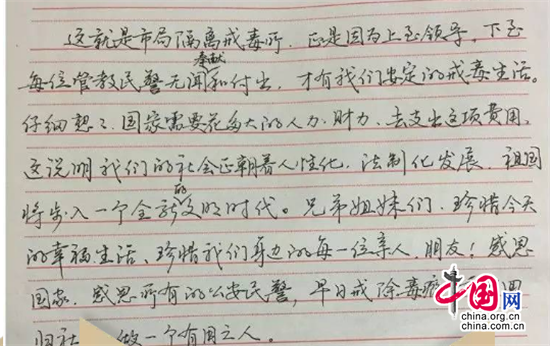 这就是市局隔离戒毒所。正是因为上至领导。下至
每位管教民警无闻奉献和付出，才有我们安定的戒毒生活。
仔细想之、国家需要花多大的人力、财力、去支出这项费用、
这说明我们的社会正朝着人性化、法制化发展、祖国
将步入一个全新的文明时代。兄弟姐妹们、珍惜今天
的幸福生活、珍惜我们身边的每一位亲人、朋友！感恩
国家、感恩所有的公安民警，早日戒除毒瘾 回
归社 做一个有用之人。
中国网
china.org.cn
china.com.cn